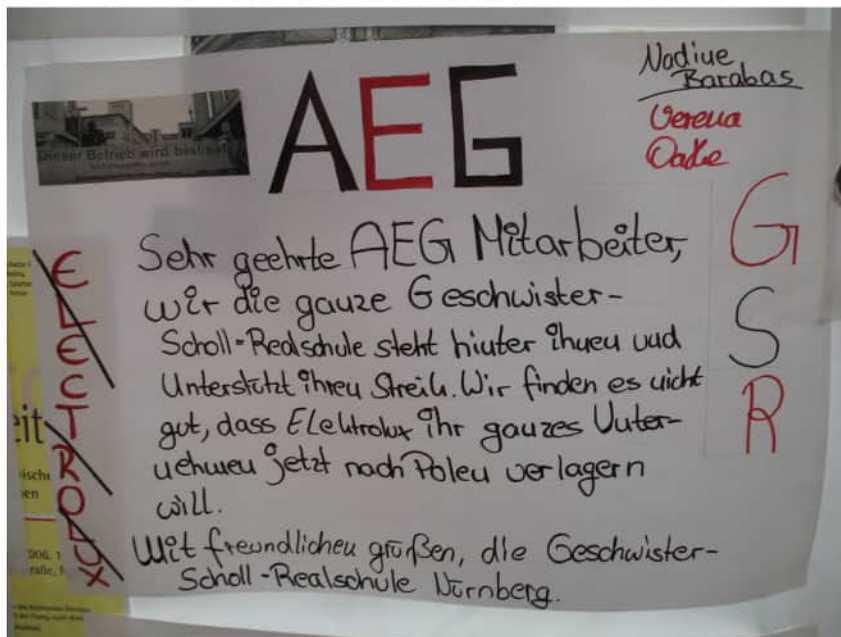 AEG
Nadine
Barabas
Verena
Dieser Betrieb wird bestreikt
Sehr geehrte AEG Mitarbeiter,
wir die ganze Geschwister-
Scholl-Realschule steht hinter ihnen und
Unterstützt ihren Streik. Wir finden es nicht
gut, dass Elektrolux ihr ganzes Unter-
nehmen jetzt nach Polen verlagern
will.
Mit freundlichen grüßen, die Geschwister-
Scholl-Realschule Nürnberg.
ELECTROLUX
G
S
R
eit